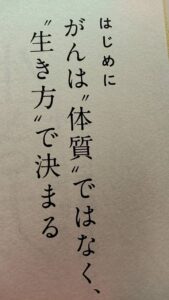 はじめに
がんは〝体質〟ではなく、
〝生き方〟で決まる